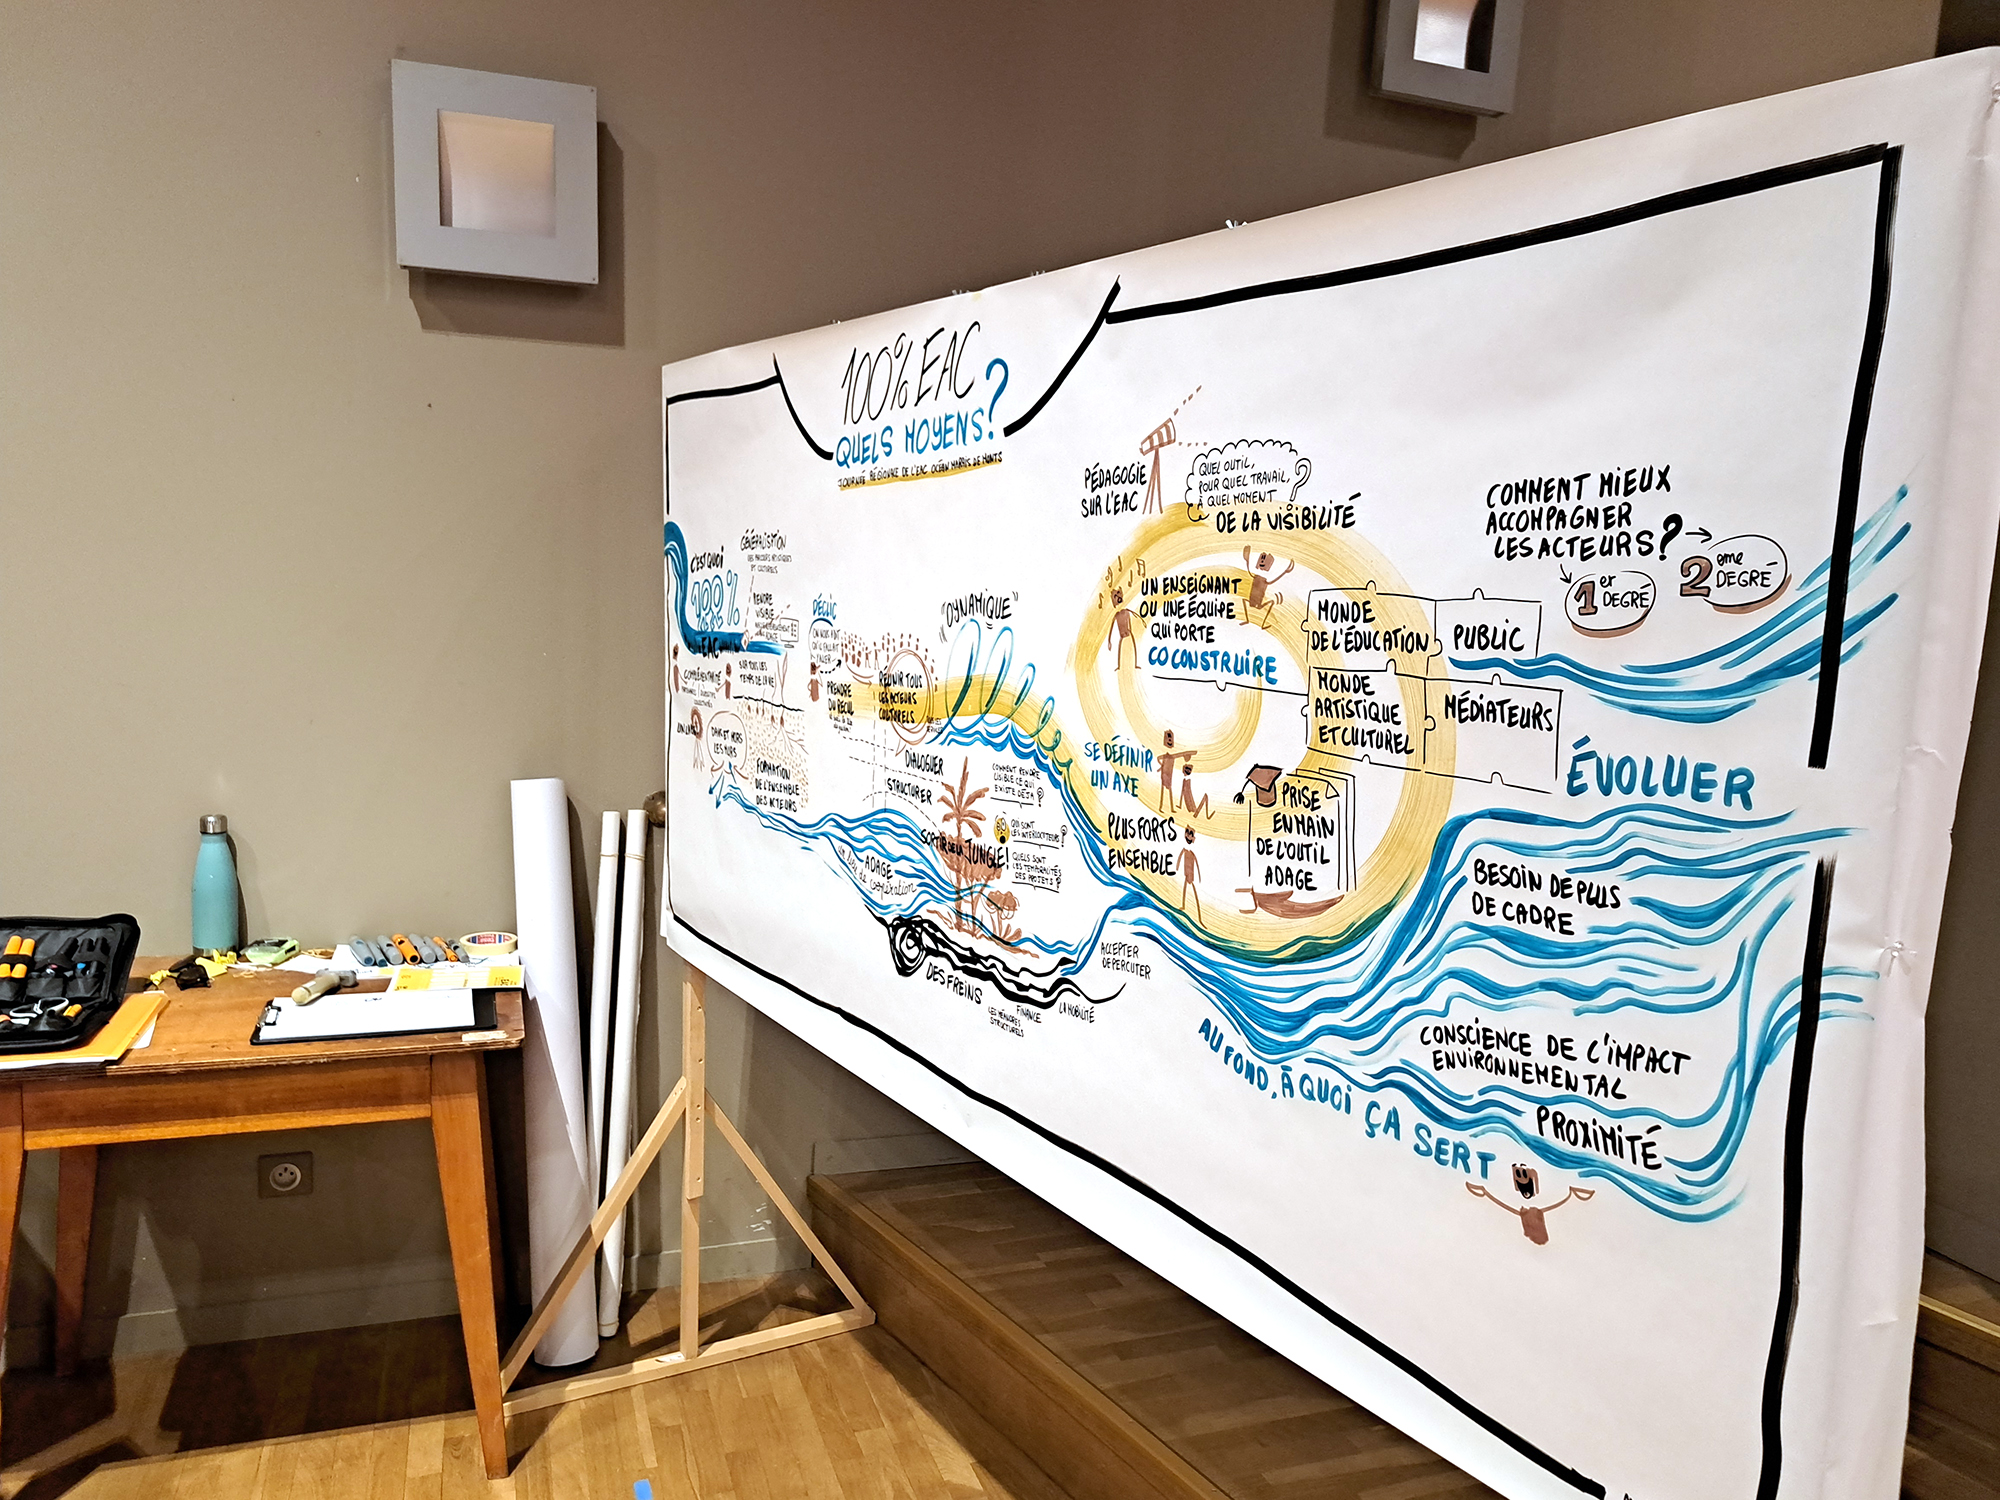 100% EAC
QUELS MOYENS?
JOURNÉE RÉGIONALE DE L'EAC OCÉAN MARAIS DE MONTS
C'EST QUOI
100%
EAC
GÉNÉRALISATION
DES PARCOURS ARTISTIQUES
ET CULTURELS
RENDRE
VISIBLE
COMPLÉMENTARITÉ
SUR TOUS LES
TEMPS DE LA VIE
DANS ET HORS
LES MURS
FORMATION
DE L'ENSEMBLE
DES ACTEURS
DÉCLIC
ON NOUS DIT
QU'IL FALLAIT
Y ALLER
PRENDRE
DU RECUL
RÉUNIR TOUS
LES ACTEURS
CULTURELS
DIALOGUER
STRUCTURER
"DYNAMIQUE"
COMMENT RENDRE
LISIBLE CE QUI
EXISTE DÉJÀ?
SORTIR DE LA JUNGLE!
QUI SONT
LES INTERLOCUTEURS?
QUELS SONT
LES TEMPORALITÉS
DES PROJETS?
ADAGE
un lieu de coopération
DES FREINS
LES MÉANDRES
STRUCTURELS
FINANCE
LA MOBILITÉ
ACCEPTER
DE PERCUTER
PÉDAGOGIE
SUR L'EAC
QUEL OUTIL,
POUR QUEL TRAVAIL,
À QUEL MOMENT ?
DE LA VISIBILITÉ
UN ENSEIGNANT
OU UNE ÉQUIPE
QUI PORTE
COCONSTRUIRE
MONDE
DE L'ÉDUCATION
PUBLIC
MONDE
ARTISTIQUE
ET CULTUREL
MÉDIATEURS
SE DÉFINIR
UN AXE
PLUS FORTS
ENSEMBLE
PRISE
EN MAIN
DE L'OUTIL
ADAGE
COMMENT MIEUX
ACCOMPAGNER
LES ACTEURS?
1er DEGRÉ
2eme DEGRÉ
ÉVOLUER
BESOIN DE PLUS
DE CADRE
CONSCIENCE DE L'IMPACT
ENVIRONNEMENTAL
PROXIMITÉ
AU FOND, À QUOI ÇA SERT